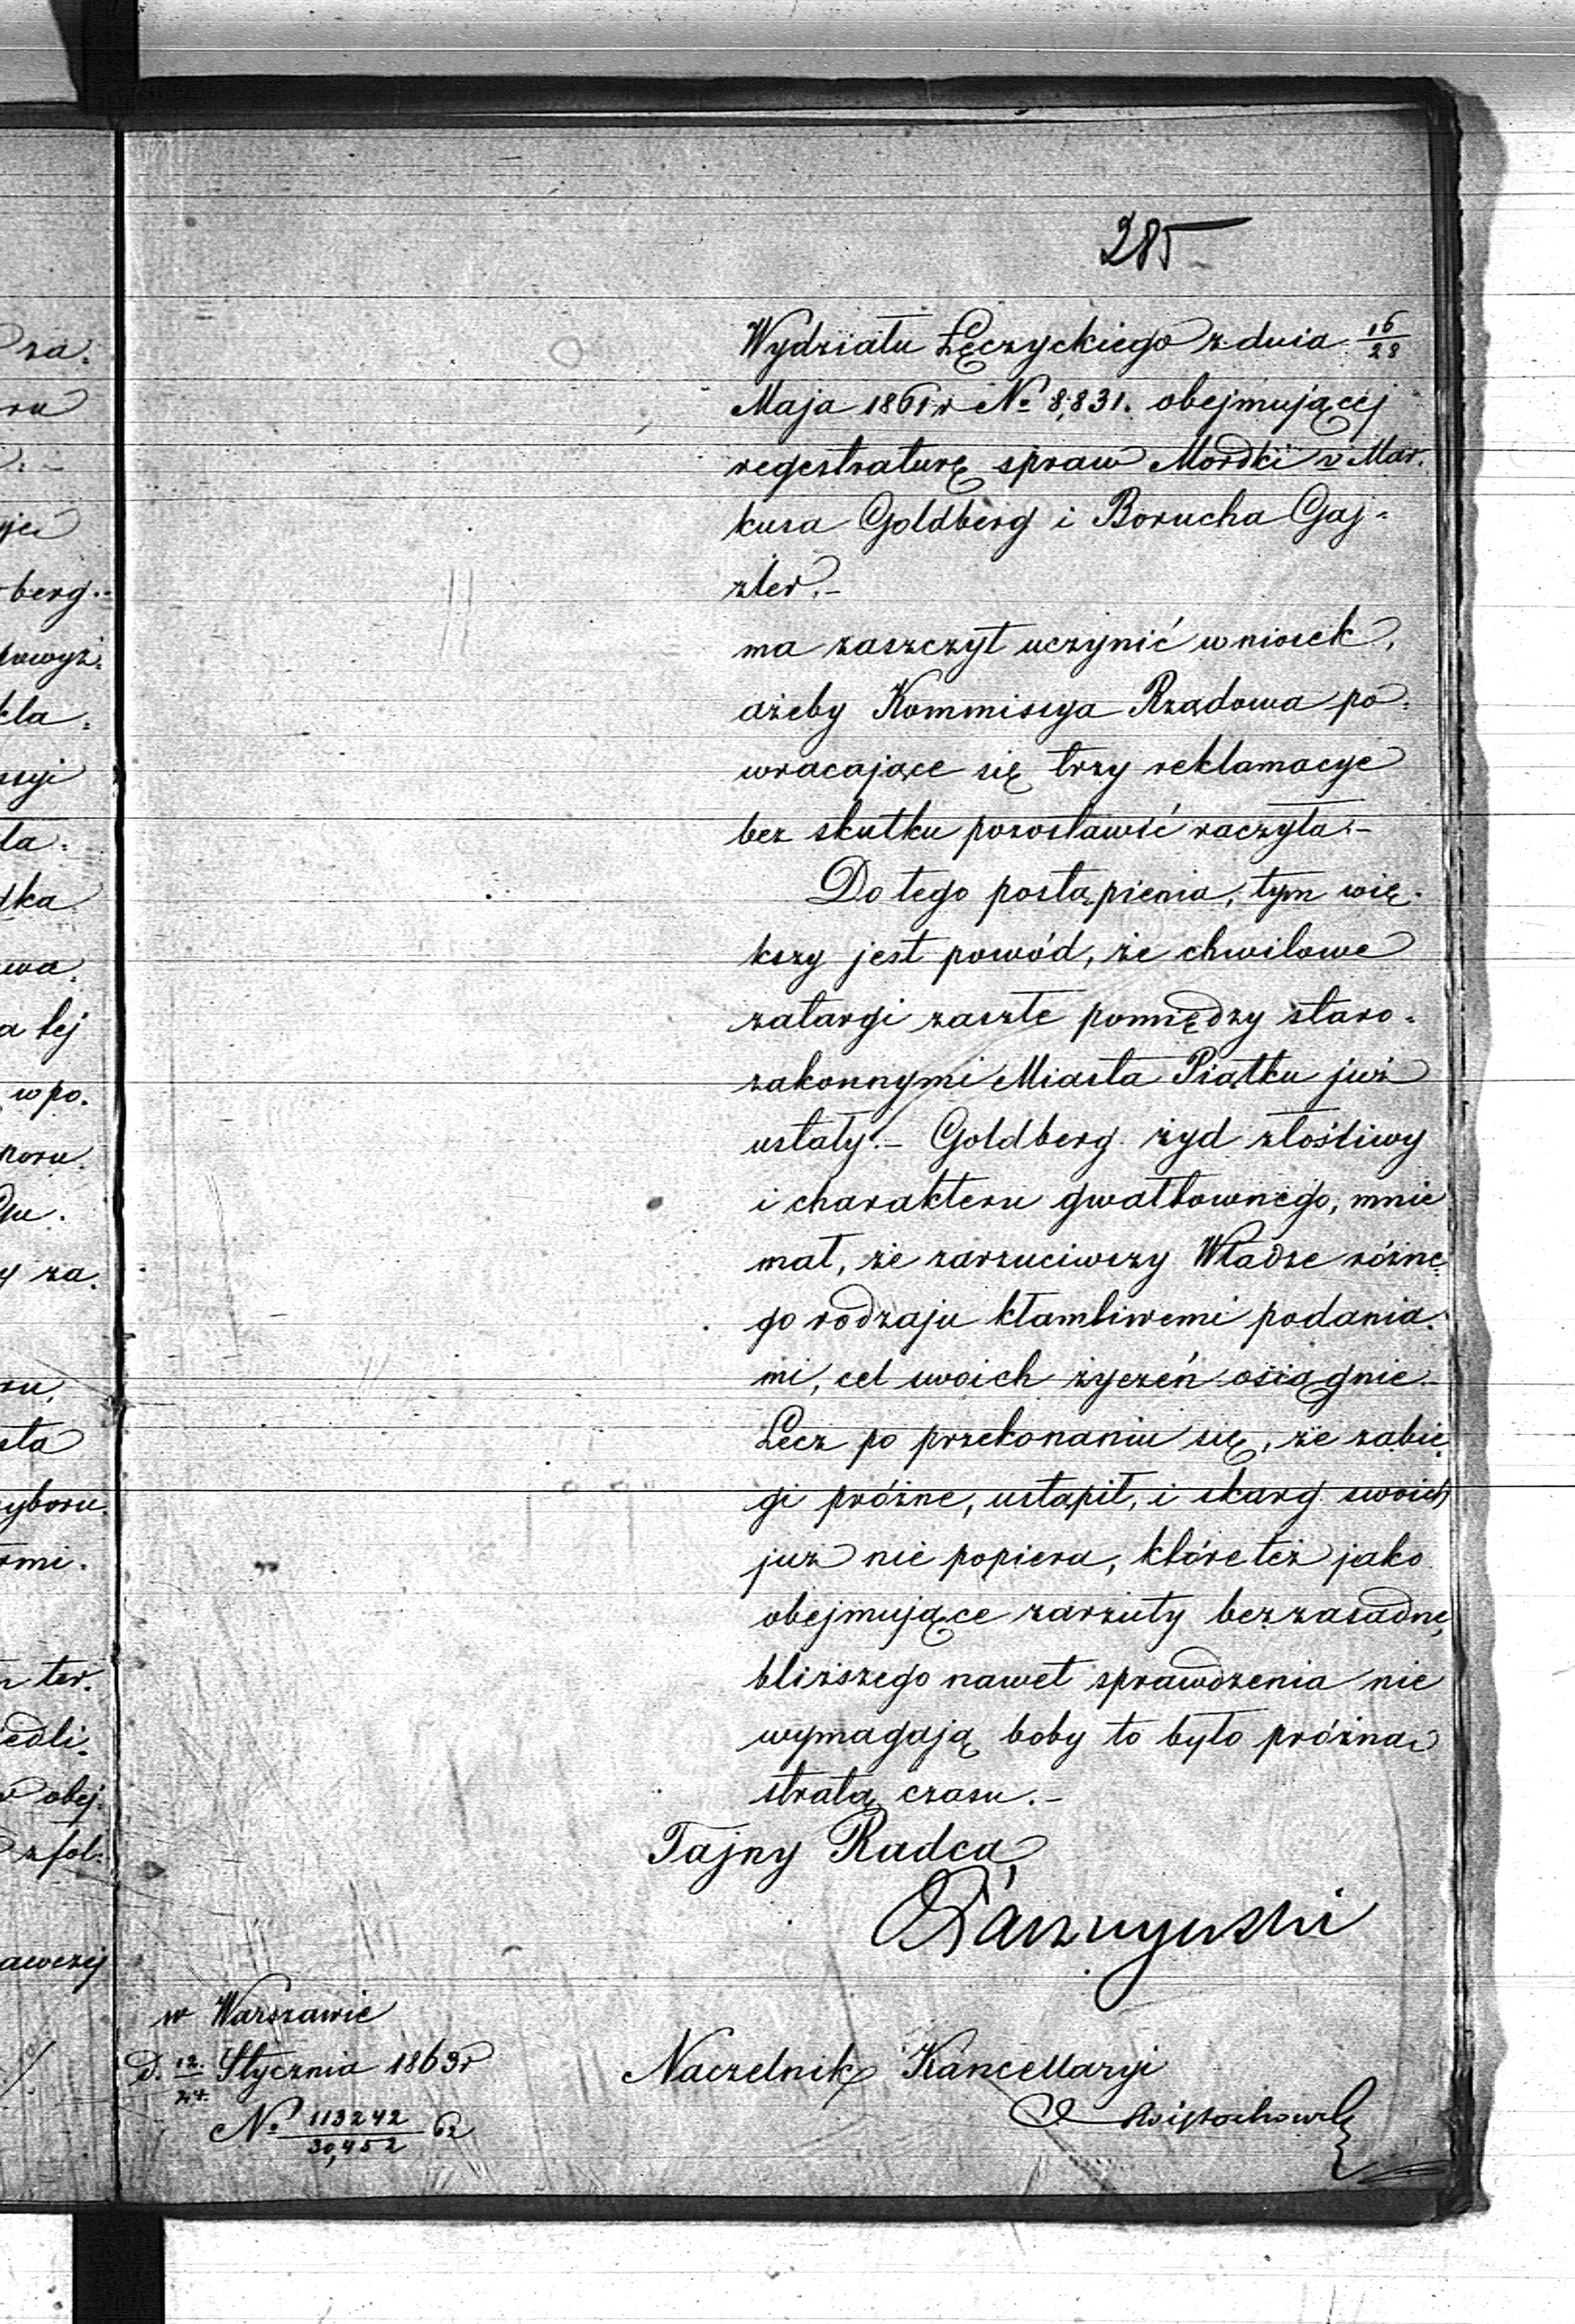 285
Wydziału Łęczyckiego z dnia 16/28
Maja 1861 r № 8,831. obejmującej
regestraturę spraw Mordki v Mar.
kusa Goldberg i Borucha Gaj-
zler.-
ma zaszczyt uczynić wniosek,
ażeby Kommissya Rządowa po-
wracające się trzy reklamacye
bez skutku pozostawić raczyła.-
Do tego postąpienia, tym wię-
kszy jest powód, że chwilowe
zatargi zaszłe pomiędzy staro-
zakonnymi Miasta Piątku już
ustały.- Goldberg żyd złośliwy
i charakteru gwałtownego, mnie
mał, że zarzuciwszy Władze różne
go rodzaju kłamliwemi podania-
mi, cel swoich życzeń osiągnie.-
Lecz po przekonaniu się, że zabie
gi próżne, ustąpił, i skarg swoich
już nie popiera, które też jako
obejmujące zarzuty bezzasadne,
bliższego nawet sprawdzenia nie
wymagają boby to było próżną
stratą czasu.-
Tajny Radca
Naczelnik Kancellaryi
w Warszawie
D. 12/24 Stycznia 1863 r
№ 113242/30,452 62
za.
ru
berg.-
powyż.
kla.
ssyi
la.
dka
wa.
a tej
w po.
poru.
y za.
ru,
sta
yboru.
rmi.
n ter.
iedli.
obej.
z fol.
awczej